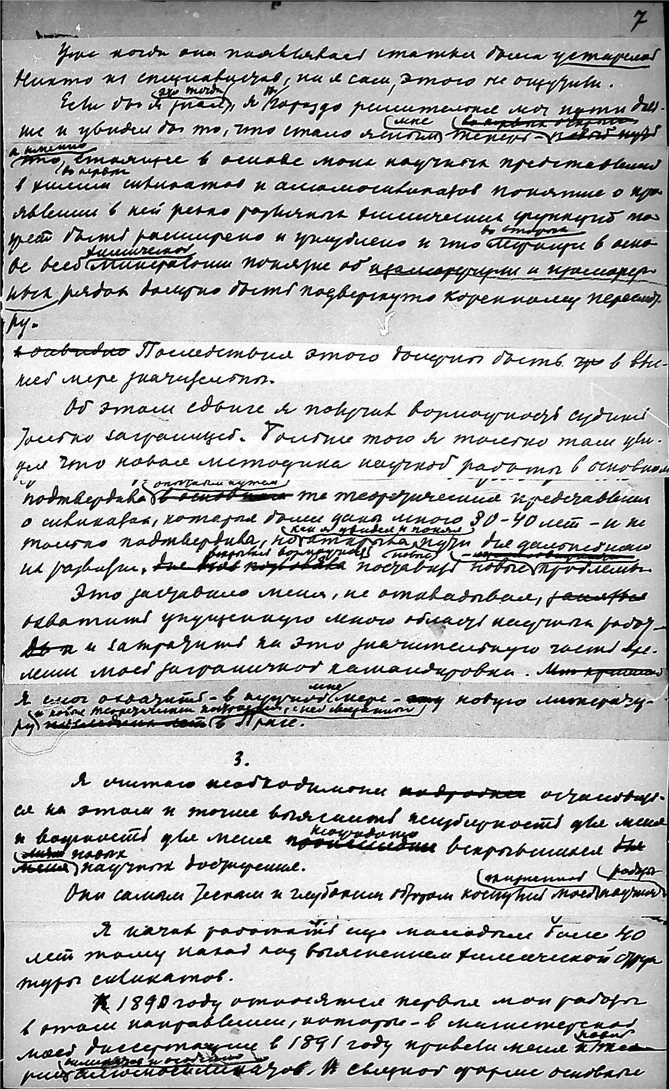 7
Уже когда она появлялась статья была устарелой
Никто из специалистов, ни я сам, этого не ощутили.
Если бы я это тогда знал, я гораздо решительнее мог идти даль-
ше и увидел бы то, что стало мне ясным теперь
а именно
что, стоящее в основе моих научных представлений
во первых
в химии силикатов и алюмосиликатов понятие о про-
явлении в ней резко различных химических функций мо-
жет быть расширено и углублено и что во вторых лежащее в осно-
ве всей химической минералогии понятие об изоморфизме и изоморф-
ных рядах должно быть подвергнуто коренному пересмот-
ру.
очевидно Последствия этого должны быть в выс-
шей мере значительны.
Об этом сдвиге я получил возможность судить
только заграницей. Больше того я только там уви-
дел что новая методика научной работы в основном
подтвердила опытным путем в основном те теоретические представления
о силикатах, которые были даны мною 30-40 лет - и не
только подтвердила, но как я увидел и понял открыла пути для дальнейшего
их развития, поставив новые проблемы.
Это заставило меня, не откладывая, заняться
охватить упущенную мною область научных работ
и затратить на это значительную часть вре-
мени моей заграничной командировки.
Я смог охватить - в нужной мне мере - эту новую литерату-
ру и новые теоретические построения, с ней связанные в Праге.
3.
Я считаю необходимым подробнее остановить-
ся на этом и точнее выяснить неизбежность для меня
и важность для меня неожиданно вскрывшихся
новых научных достижений.
Они самым тесным и глубоким образом коснулись моей жизненной научной работы
Я начал работать еще молодым более 40
лет тому назад над выяснением химической струк
туры силикатов.
К 1890 году относятся первые мои работы
в этом направлении, которые - в магистерской
моей диссертации в 1891 году привели меня к новой тео-
рии силикатов и особенно алюмосиликатов. В сводной форме основные